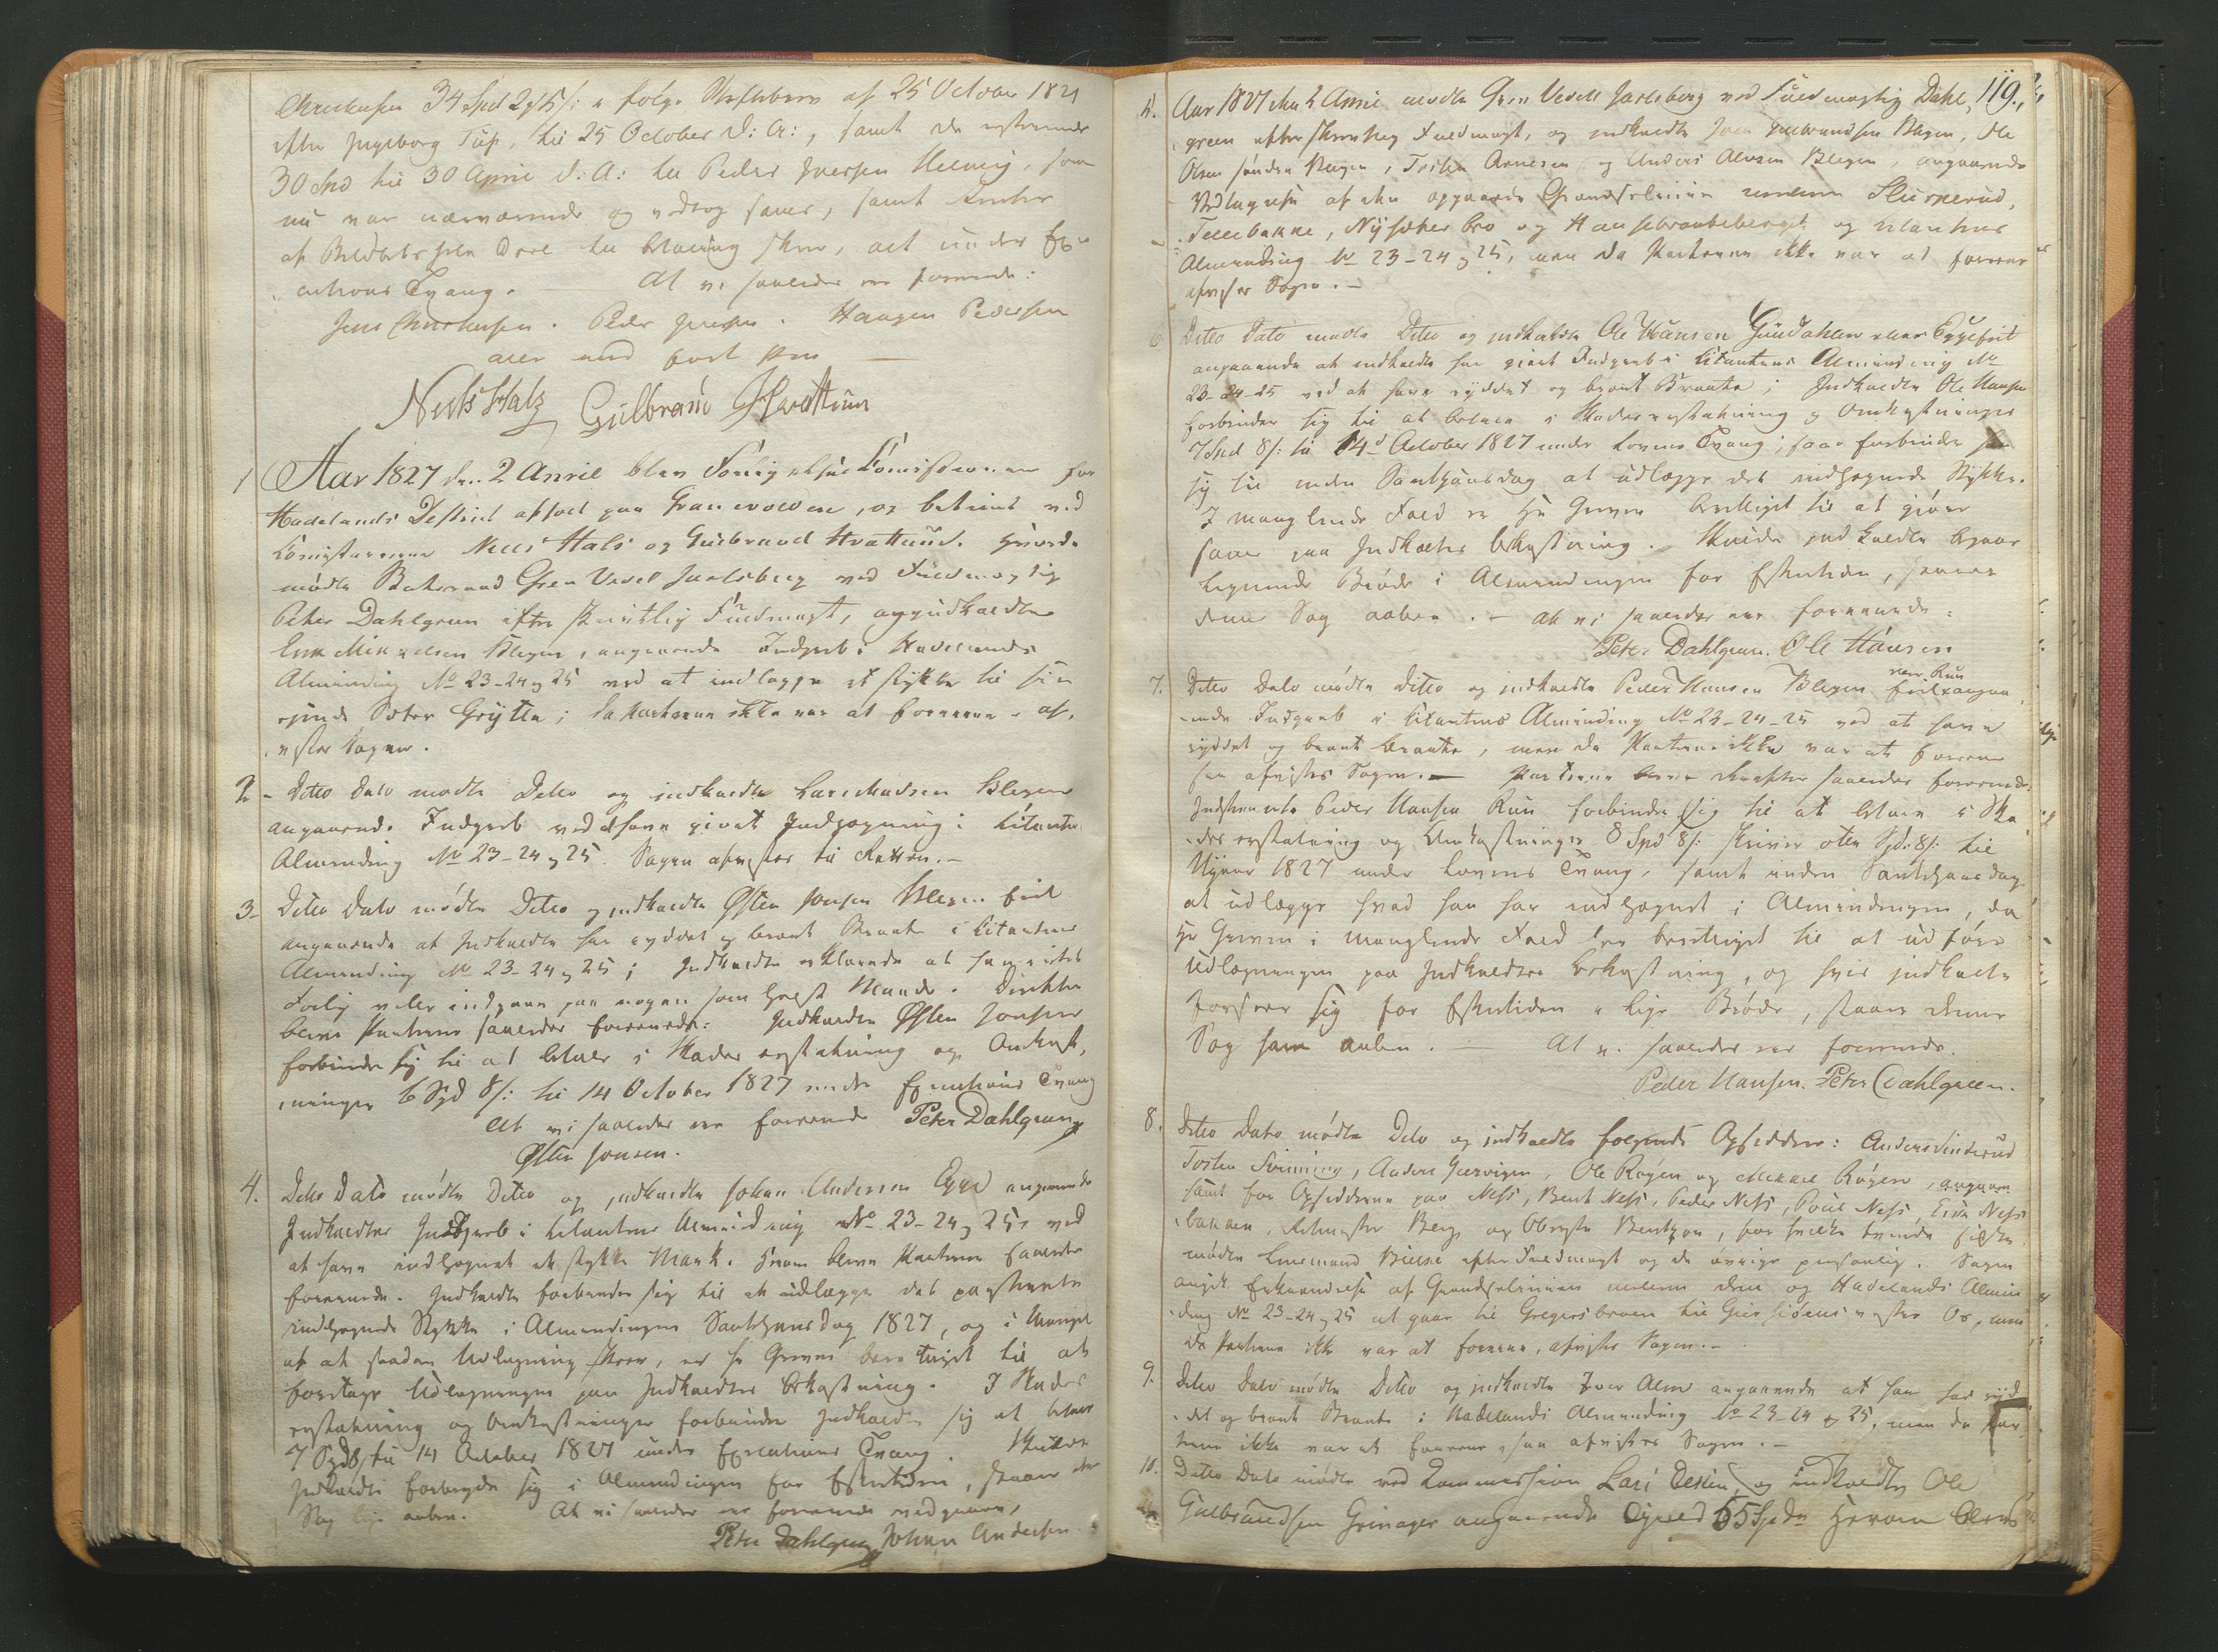 Christensen 34 Spd 2 # 15 /: i følge Skiftebrev af 25 October 1821
efter Ingeborg til 25 October d: A:, samt de resterende
30 Spd til 30 April d: A: til Peder Iversen som
nu var nærværende og vedtog samme, samt Renter
af til betaling skeer, alt under Exe-
cutions Tvang. — At vi saaledes ere forenede:
Jens Christensen. Peder Iversen. Haagen Pedersen
alle med ført Pen —
Niels Hals Gulbrand Hvattum
1 Aar 1827 den 2 April blev Forligelses Comissionen for
Hadelands District afholdt paa Granevolden, og betient ved
Comissairerne Niels Hals og Gulbrand Hvattum. Hvorda
mødte Grev Vedel Jarlsberg ved Fuldmægtig
Peter Dahlgreen efter skriftlig Fuldmagt, og indkaldte
Erik Mikkelsen Blegen, angaaende Indgreb i Hadelands
Alminding No 23-24 og 25 ved at indlægge et stykke til sin
eiende Sæter Grytte; da Parterne ikke var at forene - af-
vistes Sagen.
2 - Ditto Dato mødte Ditto og indkaldte Lars Madsen Blegen
angaaende Indgreb ved at have giort Indhegning i Citantens
Alminding No 23-24 og 25. Sagen afvistes til Retten. -
3- Ditto Dato mødte Ditto og indkaldte Østen Jonsen Blegen
angaaende at Indkaldte har ryddet og brænt Braate i Citantens
Alminding No 23-24 og 25; Indkaldte erklærede at han
Forlig ville indgaae paa nogen som helst Maade. Derefter
bleve Parterne saaledes forenede: Indkaldte Østen Jonsen
forbinder sig til at betale i Skades erstatning og Omkost-
ninger 6 Spd 8 /: til 14 October 1827 under Executions Tvang
At vi saaledes ere forenede Peter Dahlgreen
Østen Jonsen.
4. Ditto Dato mødte Ditto og indkaldte Johan Andersen Egge angaaende
Indkaldtes Indgreb i Citantens Alminding No 23-24 og 25, ved
at have indhegnet et stykke Mark. Hvorom bleve Parterne saaledes
forenede. Indkaldte forbinder sig til at udlægge det paastevnte
indhegnede Stykke i Almindingen Sanktjansdag 1827, og i Mangel
af at saadan Udlægning skeer, er Hr Greven berettiget til at
foretage Udlægningen paa Indkaldtes bekostning. I Skades
erstatning og Omkostninger forbinder Indkaldte sig at betale
7 Spd 8 /: til 14 October 1827 under Executions Tvang. Skulde
Indkaldte forbryde sig i Almindingen for Eftertiden, staaer denne
Sag lige aaben. At vi saaledes ere forenede vedgaaes,
Peter Dahlgreen Johan Andersen.
119.
5. Aar 1827 den 2 April mødte Grev Vedel Jarlsberg ved Fuldmægtig Dahl-
green efter skreven Fuldmagt, og indkaldte Joen Gulbrandsen Blegen, Ole
Olsen søndre Blegen, Torsten Arnesen og Anders Alvsen Blegen, angaaende
Vedtagelse af den opgaaede Grændselinie imellem Slurkerud,
Tellebakke, Nysæther bro og Haugebraateberget og Citantens
Alminding No 23-24 og 25, men da Parterne ikke var at forene
afvistes Sagen. -
6 Ditto Dato mødte Ditto og indkaldte Ole Hansen Guudahlen
angaaende at indkaldte har giort Indgreb i Citantens Alminding No
23-24-25 ved at have ryddet og brænt Braate; Indkaldte Ole Hansen
forbinder sig til at betale i Skadeserstatning og Omkostninger
7 Spd 8 /: til 14d October 1827 under Lovens Tvang; saa forbinder han
sig til inden Sanktjansdag at udlægge det indhegnede Stykke.
I manglende Fald er Hr Greven berettiget til at giøre
samme paa Indkaldtes bekostning. Skulde indkaldte begaae
lignende Brøde i Almindingen for Eftertiden, staaer
denne Sag aaben. - At vi saaledes ere forenede:
Peter Dahlgreen. Ole Hansen
7. Ditto Dato mødte ditto og indkaldte Peder Hansen Blegen angaa-
ende Indgreb i Citantens Alminding No 23-24-25 ved at have
ryddet og brænt braate, men da Parterne ikke var at forene
saa afvistes Sagen. — Parterne bleve derefter saaledes forenede:
Indstevnte Peder Hansen Ruu forbinder sig til at betale i Ska-
des erstatning og Omkostninger 8 Spd 8 /: skriver otte Spd: 8 /: til
Nyaar 1827 under Lovens Tvang, samt inden Sanktjansdag
at udlægge hvad han har indhegnet i Almindingen, da
Hr Greven i manglende Fald er berettiget til at udføre
Udlægningen paa Indkaldtes bekostning, og hvis indkaldte
forseer sig for Eftertiden i lige Brøde, staaer denne
Sag ham aaben. — At vi saaledes ere forenede.
Peder Hansen. Peter Dahlgreen.
8. Ditto Dato mødte Ditto og indkaldte følgende Opsiddere: Anders
Torsten Svinning, Anders Ole Røyen og Mikkel Røyen,
samt for Opsidderne paa Ness, Berit Ness, Peder Ness, Povel Ness, Erik Ness-
bakken, Ritmester Berg og Oberste Bentzon, for hvilke tvende sidste
mødte Lensmand efter Fuldmagt og de øvrige personlig. Sagen
angik Erkiendelse af Grændselinien imellem dem og Hadelands Almin-
ding No 23-24 og 25 at gaae til Gregersbroen til vestre Os, men
da Parterne ikke var at forene, afvistes Sagen. -
9. Ditto Dato mødte Ditto og indkaldte Iver Alm angaaende at han har ryd-
det og brænt Braate i Hadelands Alminding No 23-24 og 25, men da Par-
terne ikke var at forene, saa afvistes Sagen. -
10. Ditto Dato mødte ved Commission Lars og indkaldte Ole
Gulbrandsen Grinager angaaende Gjæld 55 Spd. Hvorom bleve